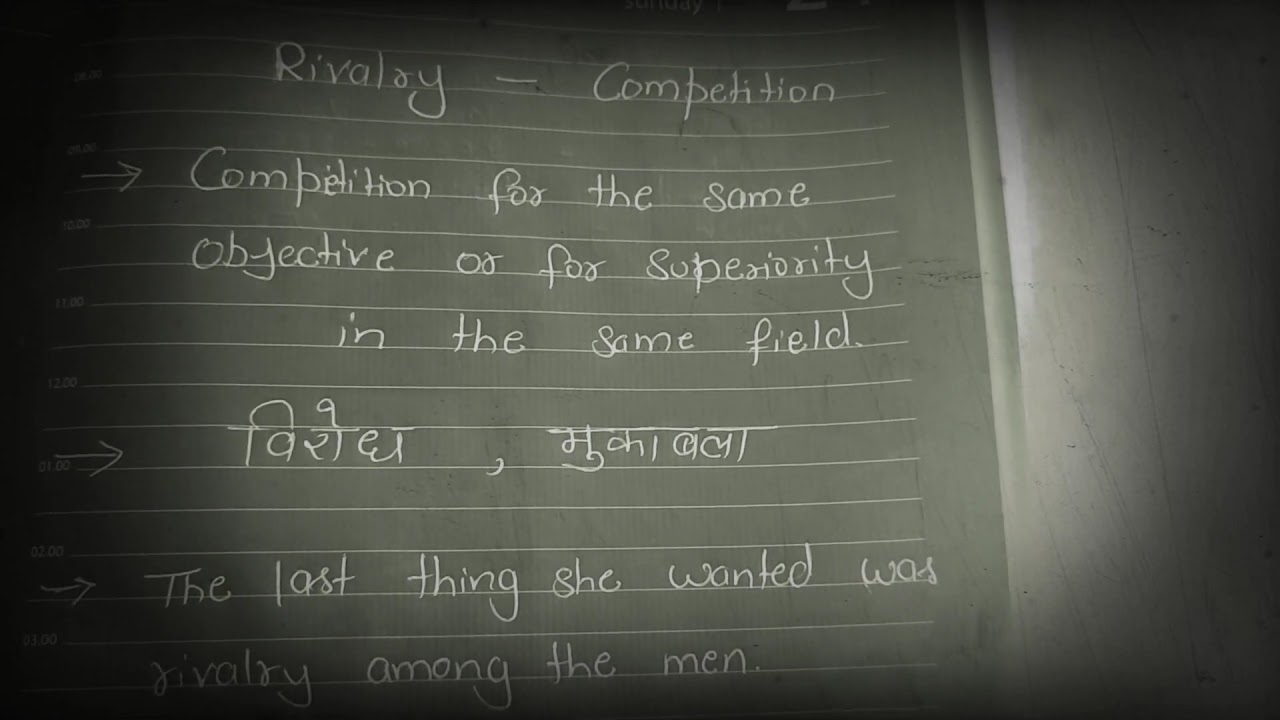 sunday
08.00
Rivalry – Competition
09.00
→ Competition for the same
10.00
objective or for superiority
11.00
in the same field.
12.00
01.00
→ विरोध , मुकाबला
02.00
→ The last thing she wanted was
03.00
rivalry among the men.